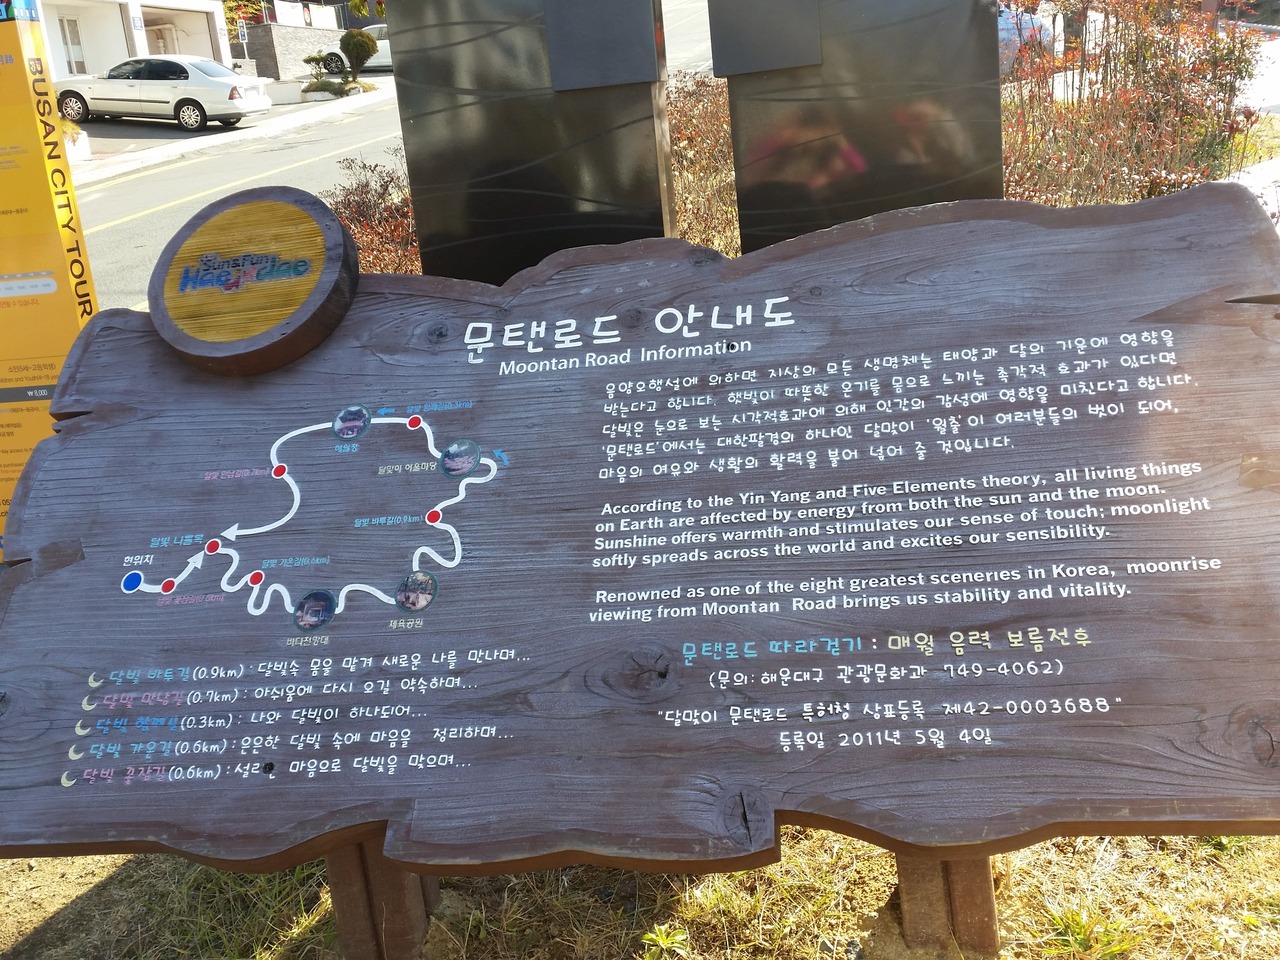 BUSAN CITY TOUR
₩ 8,000
Sun&Fun
Haeundae
문탠로드 안내도
Moontan Road Information
음양오행설에 의하면 지상의 모든 생명체는 태양과 달의 기운에 영향을
받는다고 합니다. 햇빛이 따뜻한 온기를 몸으로 느끼는 촉각적 효과가 있다면
달빛은 눈으로 보는 시각적효과에 의해 인간의 감성에 영향을 미친다고 합니다.
'문탠로드'에서는 대한팔경의 하나인 달맞이 '월출'이 여러분들의 벗이 되어,
마음의 여유와 생활의 활력을 불어 넣어 줄 것입니다.
According to the Yin Yang and Five Elements theory, all living things
on Earth are affected by energy from both the sun and the moon.
Sunshine offers warmth and stimulates our sense of touch; moonlight
softly spreads across the world and excites our sensibility.
Renowned as one of the eight greatest sceneries in Korea, moonrise
viewing from Moontan Road brings us stability and vitality.
문탠로드 따라걷기 : 매월 음력 보름전후
(문의: 해운대구 관광문화과 749-4062)
"달맞이 문탠로드 특허청 상표등록 제42-0003688"
등록일 2011년 5월 4일
달빛 함께길(0.3km)
해월정
달맞이 어울마당
달빛 만남길(0.7km)
달빛 바투길(0.9km)
달빛 나들목
현위치
달빛 가온길(0.6km)
달빛 꽃잠길
체육공원
바다전망대
달빛 바투길(0.9km) : 달빛속 몸을 맡겨 새로운 나를 만나며...
달빛 만남길(0.7km) : 아쉬움에 다시 오길 약속하며...
달빛 함께길(0.3km) : 나와 달빛이 하나되어...
달빛 가온길(0.6km) : 은은한 달빛 속에 마음을 정리하며...
달빛 꽃잠길(0.6km) : 설레는 마음으로 달빛을 맞으며...